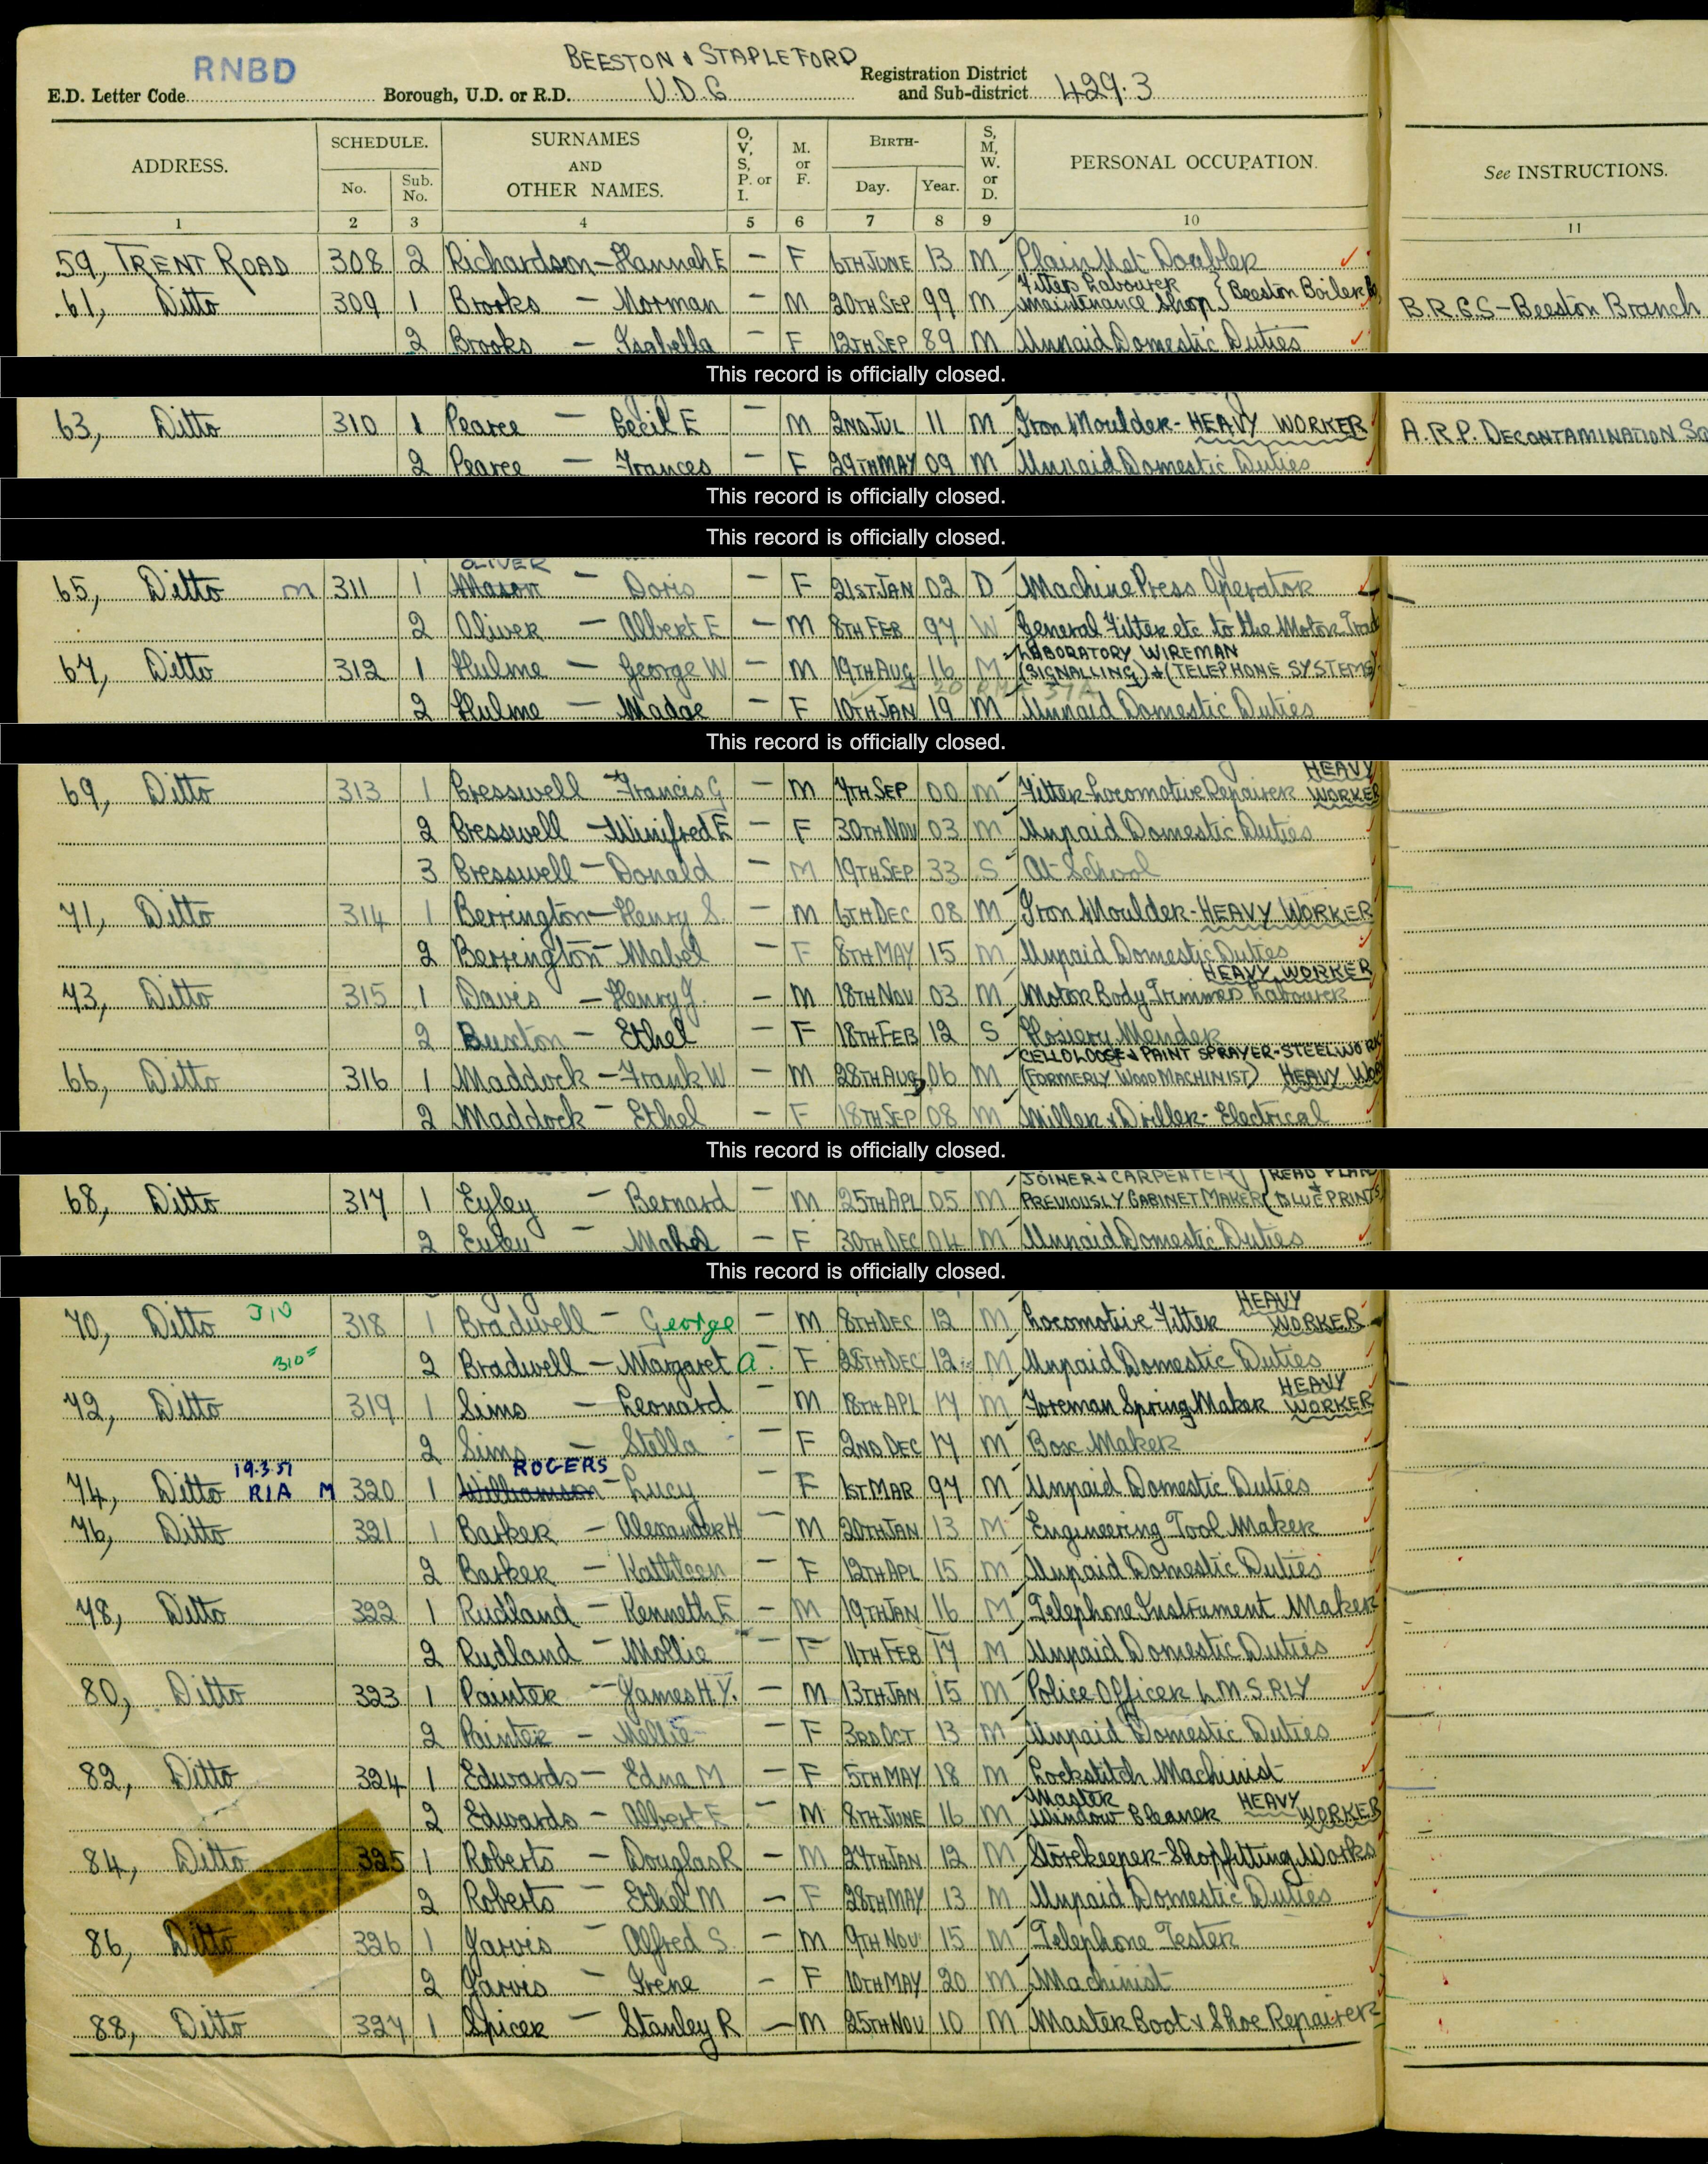 RNBD
BEESTON & STAPLEFORD
E.D. Letter Code Borough, U.D. or R.D. U.D.C Registration District and Sub-district 429.3
ADDRESS. SCHEDULE. No. Sub. No. SURNAMES AND OTHER NAMES. O, V, S, P. or I. M. or F. BIRTH- Day. Year. S, M, W. or D. PERSONAL OCCUPATION. See INSTRUCTIONS.
1 2 3 4 5 6 7 8 9 10 11
59, TRENT ROAD 308 2 Richardson — Hannah E — F 6TH JUNE 13 M Plain Net Doubler
61, Ditto 309 1 Brooks — Norman — M 20TH SEP 99 M Fitters Labourer Maintenance Shop } Beeston Boiler B.R.C.S — Beeston Branch
2 Brooks — Isabella — F 12TH SEP 89 M Unpaid Domestic Duties
This record is officially closed.
63, Ditto 310 1 Pearce — Cecil E — M 2ND JUL 11 M Iron Moulder - HEAVY WORKER A.R.P. DECONTAMINATION
2 Pearce — Frances — F 29TH MAY 09 M Unpaid Domestic Duties
This record is officially closed.
This record is officially closed.
OLIVER
65, Ditto M 311 1 Mason — Doris — F 21ST JAN 02 D Machine Press Operator
2 Oliver — Albert E — M 8TH FEB 97 W General Fitter etc to the Motor Trad
67, Ditto 312 1 Hulme — George W — M 19TH AUG 16 M LABORATORY WIREMAN (SIGNALLING) & (TELEPHONE SYSTEMS)
2 Hulme — Madge — F 10TH JAN 19 M Unpaid Domestic Duties
This record is officially closed.
69, Ditto 313 1 Cresswell — Francis G — M 7TH SEP 00 M Fitter Locomotive Repairer HEAVY WORKER
2 Cresswell — Winifred E — F 30TH NOV 03 M Unpaid Domestic Duties
3 Cresswell — Donald — M 19TH SEP 33 S At School
71, Ditto 314 1 Berrington — Henry S. — M 6TH DEC 08 M Iron Moulder - HEAVY WORKER
2 Berrington — Mabel — F 8TH MAY 15 M Unpaid Domestic Duties
73, Ditto 315 1 Davis — Henry J. — M 18TH NOV 03 M Motor Body Trimmers Labourer HEAVY WORKER
2 Buxton — Ethel — F 18TH FEB 12 S Hosiery Mender
66, Ditto 316 1 Maddock — Frank W — M 28TH AUG 06 M CELLOLOOSE & PAINT SPRAYER - STEELWORK (FORMERLY WOOD MACHINIST) HEAVY WOR
2 Maddock — Ethel — F 18TH SEP 08 M Miller & Driller - Electrical
This record is officially closed.
68, Ditto 317 1 Eyley — Bernard — M 25TH APL 05 M JOINER & CARPENTER PREVIOUSLY CABINET MAKER (READ PLAN & BLUEPRINTS
2 Eyley — Mabel — F 30TH DEC 04 M Unpaid Domestic Duties
This record is officially closed.
70, Ditto 318 1 Bradwell — George — M 8TH DEC 12 M Locomotive Fitter HEAVY WORKER
2 Bradwell — Margaret A. F 28TH DEC 12 M Unpaid Domestic Duties
72, Ditto 319 1 Sims — Leonard — M 18TH APL 17 M Foreman Spring Maker HEAVY WORKER
2 Sims — Stella — F 2ND DEC 17 M Box Maker
19.3.51 ROGERS
74, Ditto R1A M 320 1 Williamson — Lucy — F 1ST MAR 97 M Unpaid Domestic Duties
76, Ditto 321 1 Barker — Alexander H — M 20TH JAN 13 M Engineering Tool Maker
2 Barker — Kathleen — F 12TH APL 15 M Unpaid Domestic Duties
78, Ditto 322 1 Rudland — Kenneth E — M 19TH JAN 16 M Telephone Instrument Maker
2 Rudland — Mollie — F 11TH FEB 17 M Unpaid Domestic Duties
80, Ditto 323 1 Painter — James H.Y. — M 13TH JAN 15 M Police Officer L.M.S. RLY
2 Painter — Nellie — F 3RD OCT 13 M Unpaid Domestic Duties
82, Ditto 324 1 Edwards — Edna M — F 5TH MAY 18 M Lockstitch Machinist
2 Edwards — Albert E — M 8TH JUNE 16 M Master Window Cleaner HEAVY WORKER
84, Ditto 325 1 Roberts — Douglas R — M 27TH JAN 12 M Storekeeper - Shopfitting Works
2 Roberts — Ethel M — F 28TH MAY 13 M Unpaid Domestic Duties
86, Ditto 326 1 Jarvis — Alfred S. — M 9TH NOV 15 M Telephone Tester
2 Jarvis — Irene — F 10TH MAY 20 M Machinist
88, Ditto 327 1 Spicer — Stanley R — M 25TH NOV 10 M Master Boot & Shoe Repairer